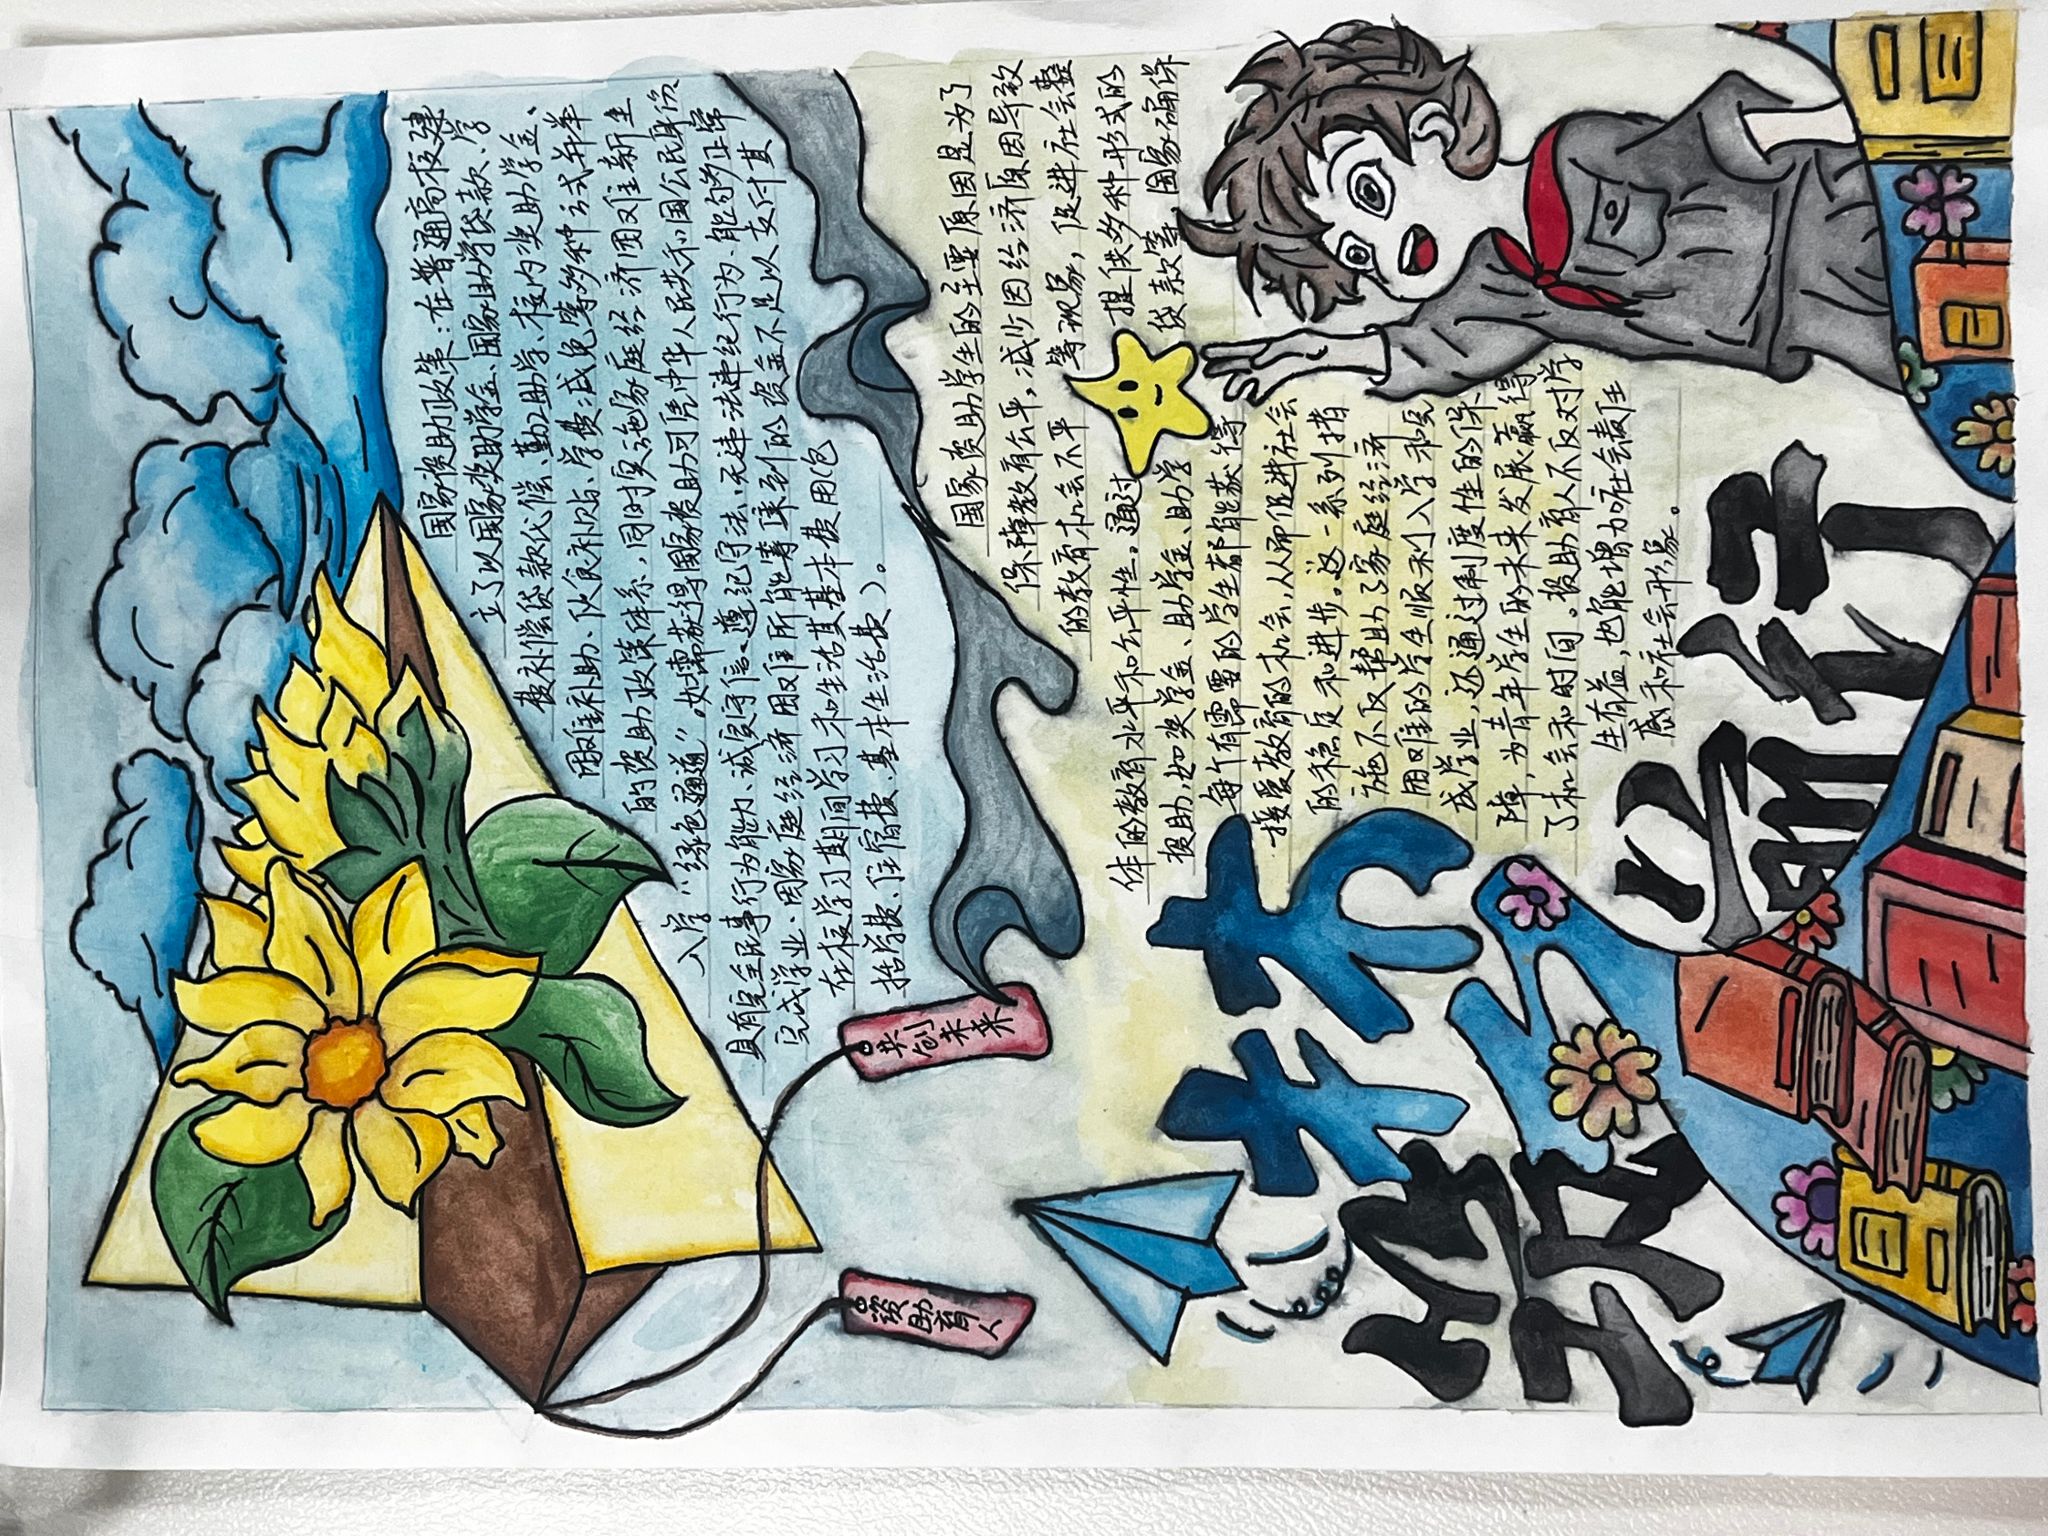 国家资助政策：在普通高校建
立了以国家奖助学金、国家助学贷款、学
费补偿贷款代偿、勤工助学、校内奖助学金、
困难补助、伙食补贴、学费减免等多种方式并举
的资助政策体系，同时实施家庭经济困难新生
入学“绿色通道”。如需获得国家资助可凭中华人民共和国公民身份
具有完全民事行为能力、诚实守信、遵纪守法、无违法违纪行为、能够正常
完成学业、因家庭经济困难所能筹集到的资金不足以支付其
在校学习期间学习和生活基本费用（包
括学费、住宿费、基本生活费）。
共创未来
资助育人
国家资助学生的主要原因是为了
保障教育公平，减少因经济原因导致
的教育机会不平等现象，促进社会整
体的教育水平和公平性。通过提供多种形式的
资助，如奖学金、助学金、助学贷款等，国家确保
每个有需要的学生都能获得
接受教育的机会，从而促进社会
的稳定和进步。这一系列措
施不仅帮助了家庭经济
困难的学生顺利入学和完
成学业，还通过制度性的保
障，为青年学生的未来发展赢得
了机会和时间。资助育人不仅对学
生有益，也能增加社会责任
感和社会形象。
筑梦前行